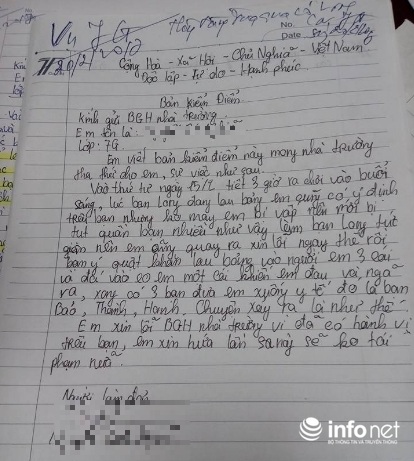 Vụ 7G
No.
Date
Cộng Hoà - Xã Hội - Chủ Nghĩa - Việt Nam
Độc lập - Tự do - Hạnh phúc
Bản Kiểm Điểm
Kính gửi BGH nhà trường
Em tên là:
Lớp: 7G
Em viết bản kiểm điểm này mong nhà trường
tha thứ cho em, sự việc như sau:
Vào thứ tư ngày 15/2 tiết 3 giờ ra chơi vào buổi
sáng, lúc bạn Long đang lau bảng em cũng có ý định
trêu bạn nhưng lỡ may em bị vấp nên mới bị
tụt quần bạn nhiêu như vậy làm bạn Long tức
giận nên em cũng quay ra xin lỗi ngay thế rồi
bạn ý quật khăn lau bảng vào người em 3 cái
và đá vào eo em một cái khiến em đau và ngã
ra, xong có 3 bạn đưa em xuống y tế đó là bạn
Bảo, Thành, Hạnh. Chuyện xảy ra là như thế
Em xin lỗi BGH nhà trường vì đã có hành vi
trêu bạn, em xin hứa lần sau sẽ ko tái
phạm nữa.
Người làm đơn
infonet
BỘ THÔNG TIN VÀ TRUYỀN THÔNG